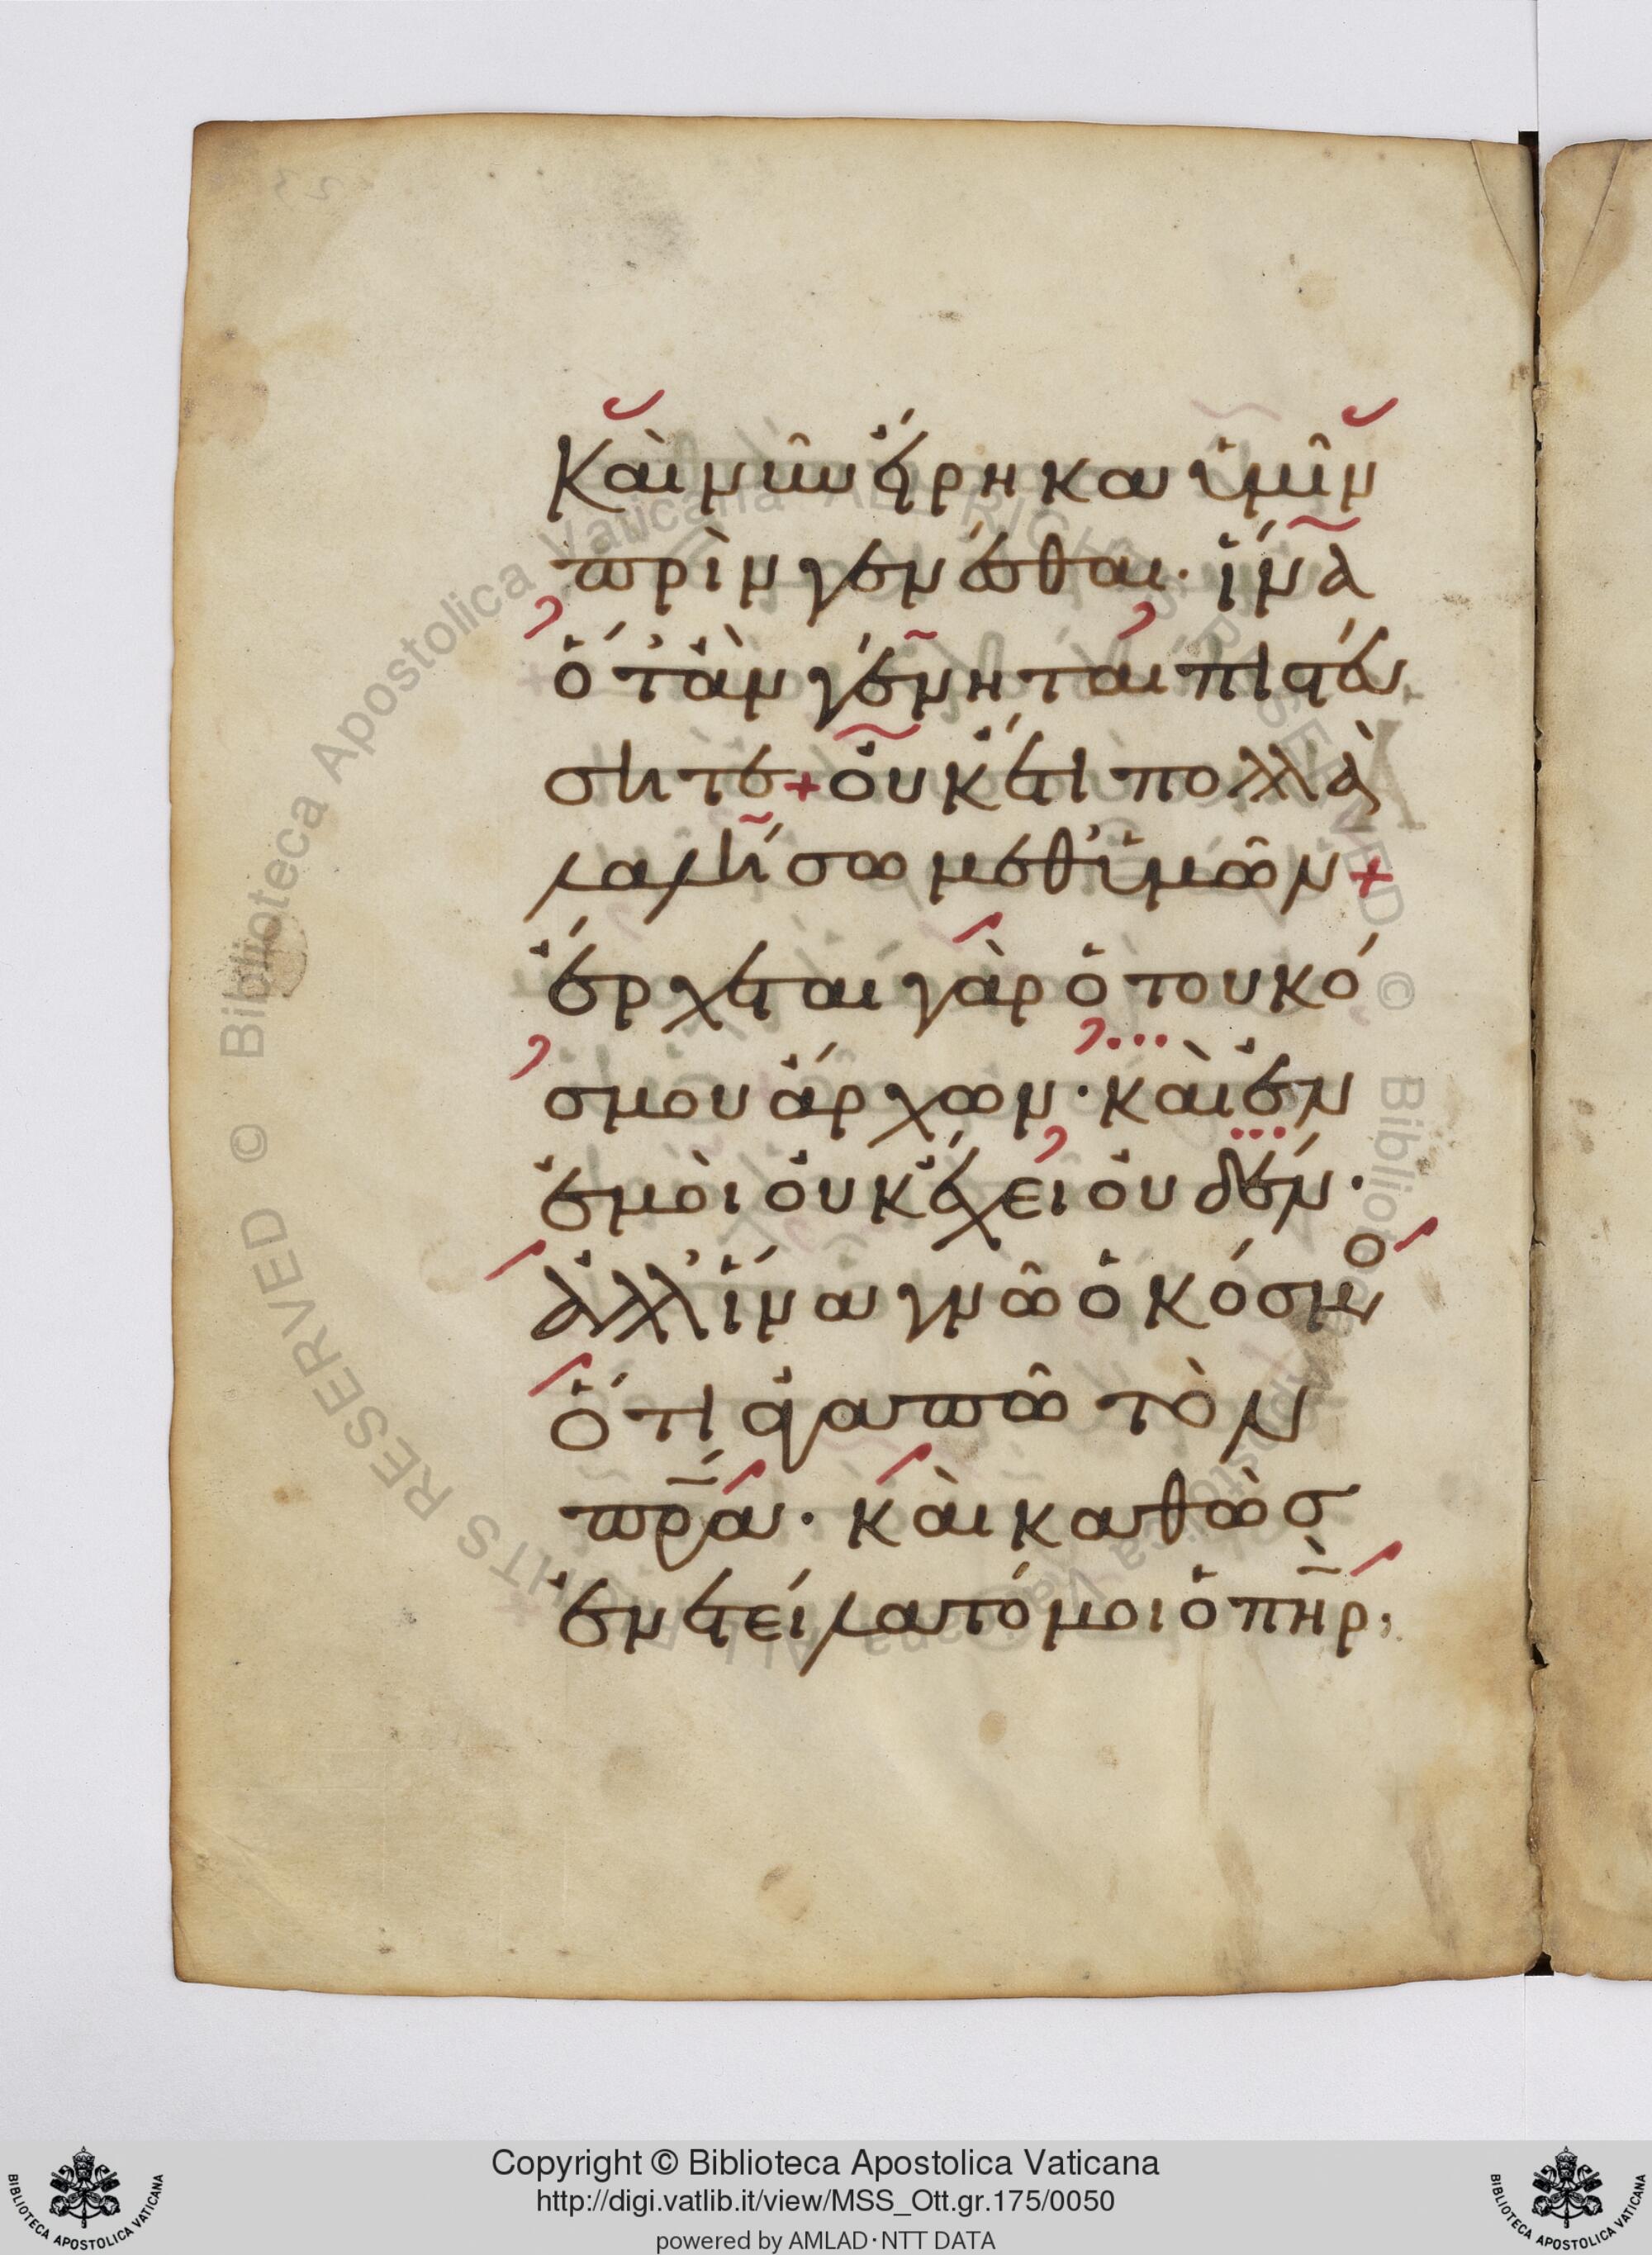 Καὶ νῦν εἴρηκα ὑμῖν
πρὶν γενέσθαι· ἵνα
ὅτ' ἂν γένηται πιστεύ
σητε + οὐκέτι πολλὰ
λαλήσω μεθ' ὑμῶν +
ἔρχεται γὰρ ὁ του κό
σμου ἄρχων· καὶ ἐν
ἐμοὶ οὐκ ἔχει οὐδέν·
ἀλλ' ἵνα γνῶ ὁ κόσμο
ὅτι ἀγαπῶ τὸν
πρ̅α· καὶ καθὼσ
ἐνετείλατό μοι ὁ πη̅ρ,
Copyright © Biblioteca Apostolica Vaticana
http://digi.vatlib.it/view/MSS_Ott.gr.175/0050
powered by AMLAD·NTT DATA
BIBLIOTECA APOSTOLICA VATICANA
BIBLIOTECA APOSTOLICA VATICANA